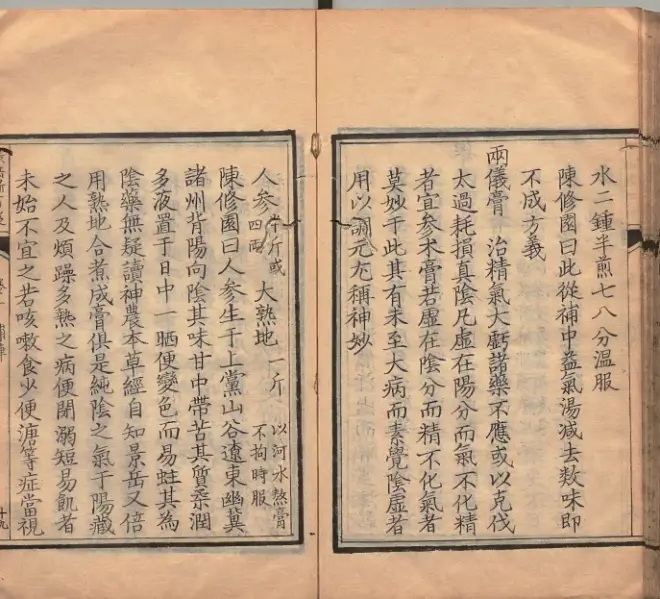 水二鍾半煎七八分溫服
陳修園曰此從補中益氣湯減去数味即
不成方義
兩儀膏　治精氣大虧諸藥不應或以克伐
太過耗損真陰凡虛在陽分而氣不化精
者宜參朮膏若虛在陰分而精不化氣者
莫妙于此其有未至大病而素覺陰虛者
用以調元尤稱神妙
人參半斤或四兩　大熟地一斤　以河水熬膏不拘時服
陳修園曰人參生于上黨山谷遼東幽冀
諸州背陽向陰其味甘中帶苦其質柔潤
多液置于日中一晒便變色而易蛀其為
陰藥無疑讀神農本草經自知景岳又倍
用熟地合煮成膏俱是純陰之氣于陽藏
之人及煩躁多熱之病便閉溺短易飢者
未始不宜之若咳嗽食少便溏等症當視
十九